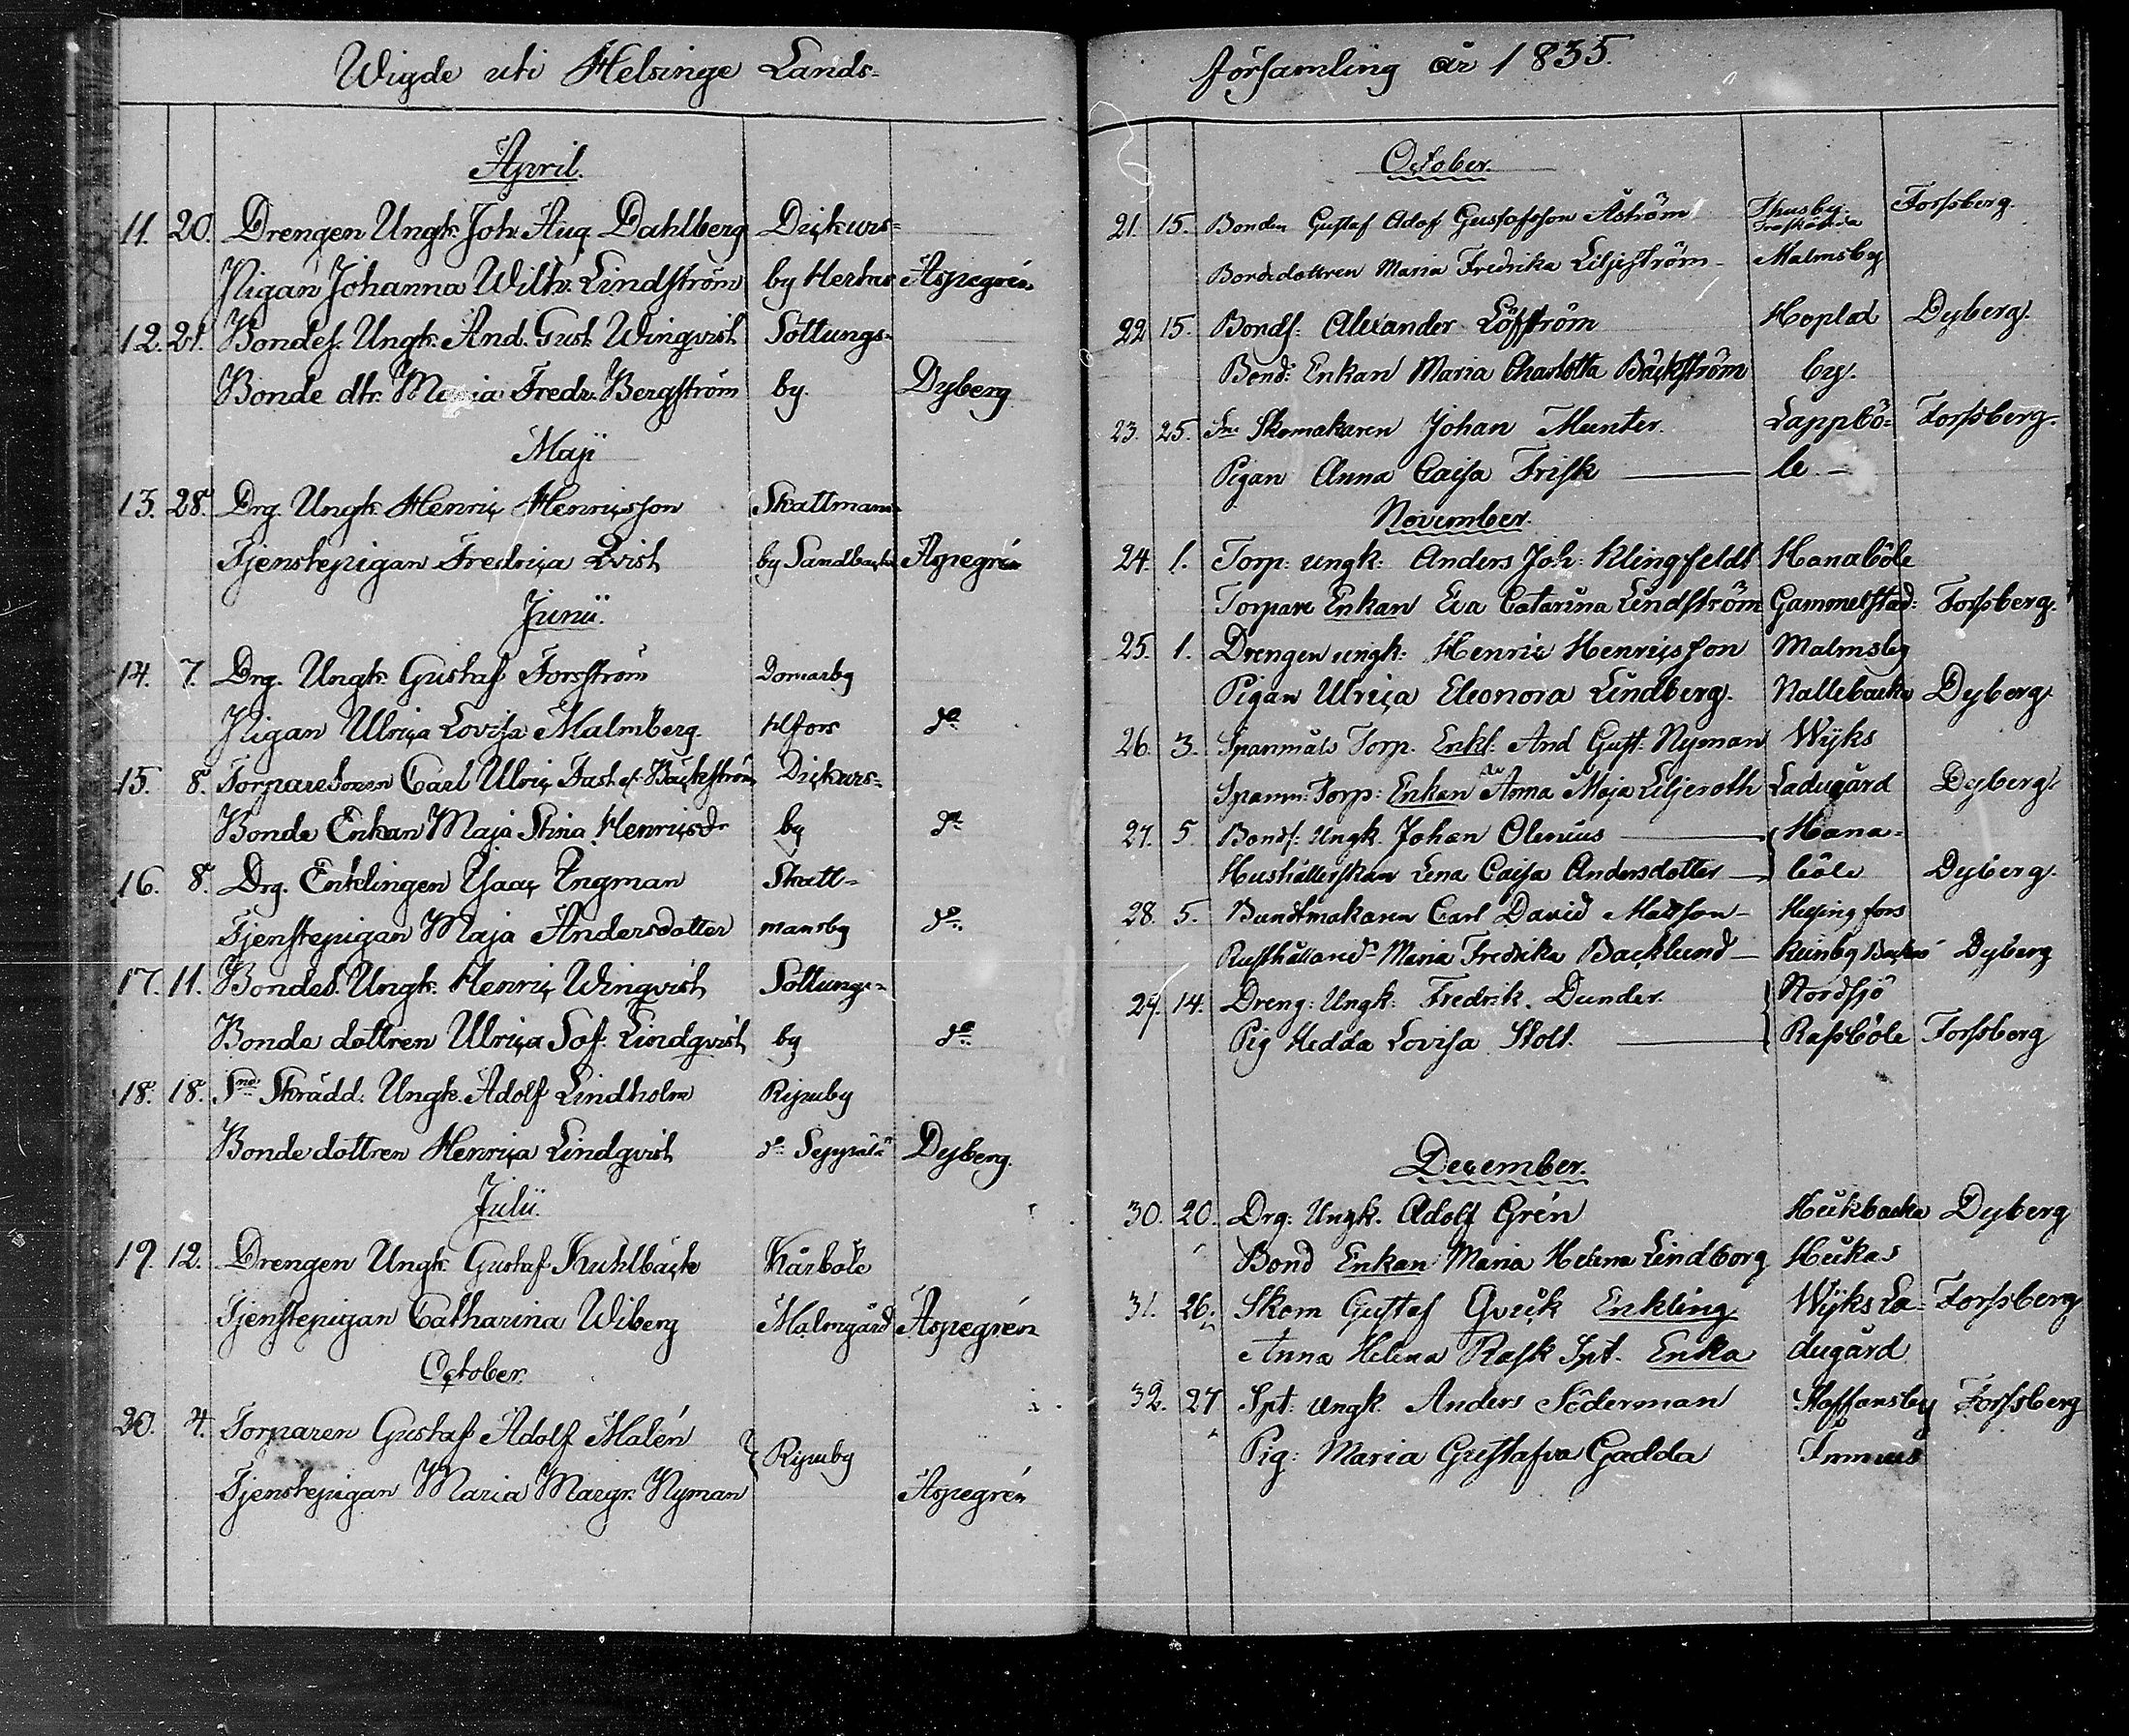 Wigde uti Helsinge Lands=
April.
11. 20. Drengen Ungk. Joh. Aug. Dahlberg Dickurs=
Pigan Johanna Wilh. Lindström by Hertas Aspegrén
12. 21. Bondes. Ungk. And. Gust. Winqvist Sottungs=
Bonde dtr. Maria Fredr. Bergström by. Dyberg
Maji
13. 28. Drg. Ungk. Henric Henricsson Skattmans=
Tjenstepigan Fredrica Qvist by Sandbacka Aspegrén
Junii.
14. 7. Drg. Ungk. Gustaf Forsström Domarby
Pigan Ulrica Lovisa Malmberg. Hlfors do
15. 8. Torparesonen Carl Ulric Bäckström Dickurs=
Bonde Enkan Maja Stina Henricsdr by do
16. 8. Drg. Enklingen Isaac Engman Skatt=
Tjenstepigan Maja Andersdotter mansby do
17. 11. Bondes. Ungk. Henric Winqvist Sottungs=
Bonde dottren Ulrica Sof. Lindqvist by do
18. 18. Sne Skrädd: Ungk. Adolf Lindholm Ripuby
Bondedottren Henrica Lindqvist do Seppälä Dyberg.
Julii.
19. 12. Drengen Ungk. Gustaf Kuhlbäck Kårböle
Tjenstepigan Catharina Wiberg Malmgård Aspegrén
October.
20. 4. Torparen Gustaf Adolf Malén } Ripuby
Tjenstepigan Maria Margr. Nyman Aspegrén
församling år 1835.
October.
21. 15. Bonden Gustaf Adof Gustafsson Åström Thusby Forssberg.
Bondedottren Maria Fredrika Liljeström - Malmsby
22 15. Bonds: Alexander Löfström Hoplad Dyberg.
Bond: Enkan Maria Charlotta Bäckström by.
23. 25. Sne Skomakaren Johan Munter. Lappbö= Forssberg.
Pigan Anna Caisa Frisk — le —
November.
24. 1. Torp: ungk: Anders Joh: Klingfeldt Hanaböle
Torpare Enkan Eva Catarina Lindström Gammelstad: Forssberg.
25. 1. Drengen ungk: Henric Henricsson Malmsby
Pigan Ulrica Eleonora Lindberg. Nallebacka Dyberg
26. 3. Spanmåls Torp. Enkl: And Gust: Nyman Wyks
Spanm: Torp: Enkan Anna Maja Liljeroth Ladugård Dyberg
27. 5. Bonds: Ungk. Johan Olenius — Hana=
Hushållerskan Lena Caisa Andersdotter — böle Dyberg.
28. 5. Bundtmakaren Carl David Mattson - Helsingfors
Maria Fredrika Backlund — Dyberg
29. 14. Dreng: Ungk: Fredrik Dunder. Nordsjö
Pig Hedda Lovisa Stolt. — Rassböle Forssberg
December.
30. 20. Drg: Ungk. Adolf Grén Hukbacka Dyberg
Bond Enkan Maria Helena Lindborg Hukas
31. 26. Skom Gustaf Qvick Enkling Wyks La= Forssberg
Anna Helena Rask Spt. Enka dugård
32. 27 Spt: Ungk. Anders Söderman Staffansby Forssberg
Pig: Maria Gustafva Gadda